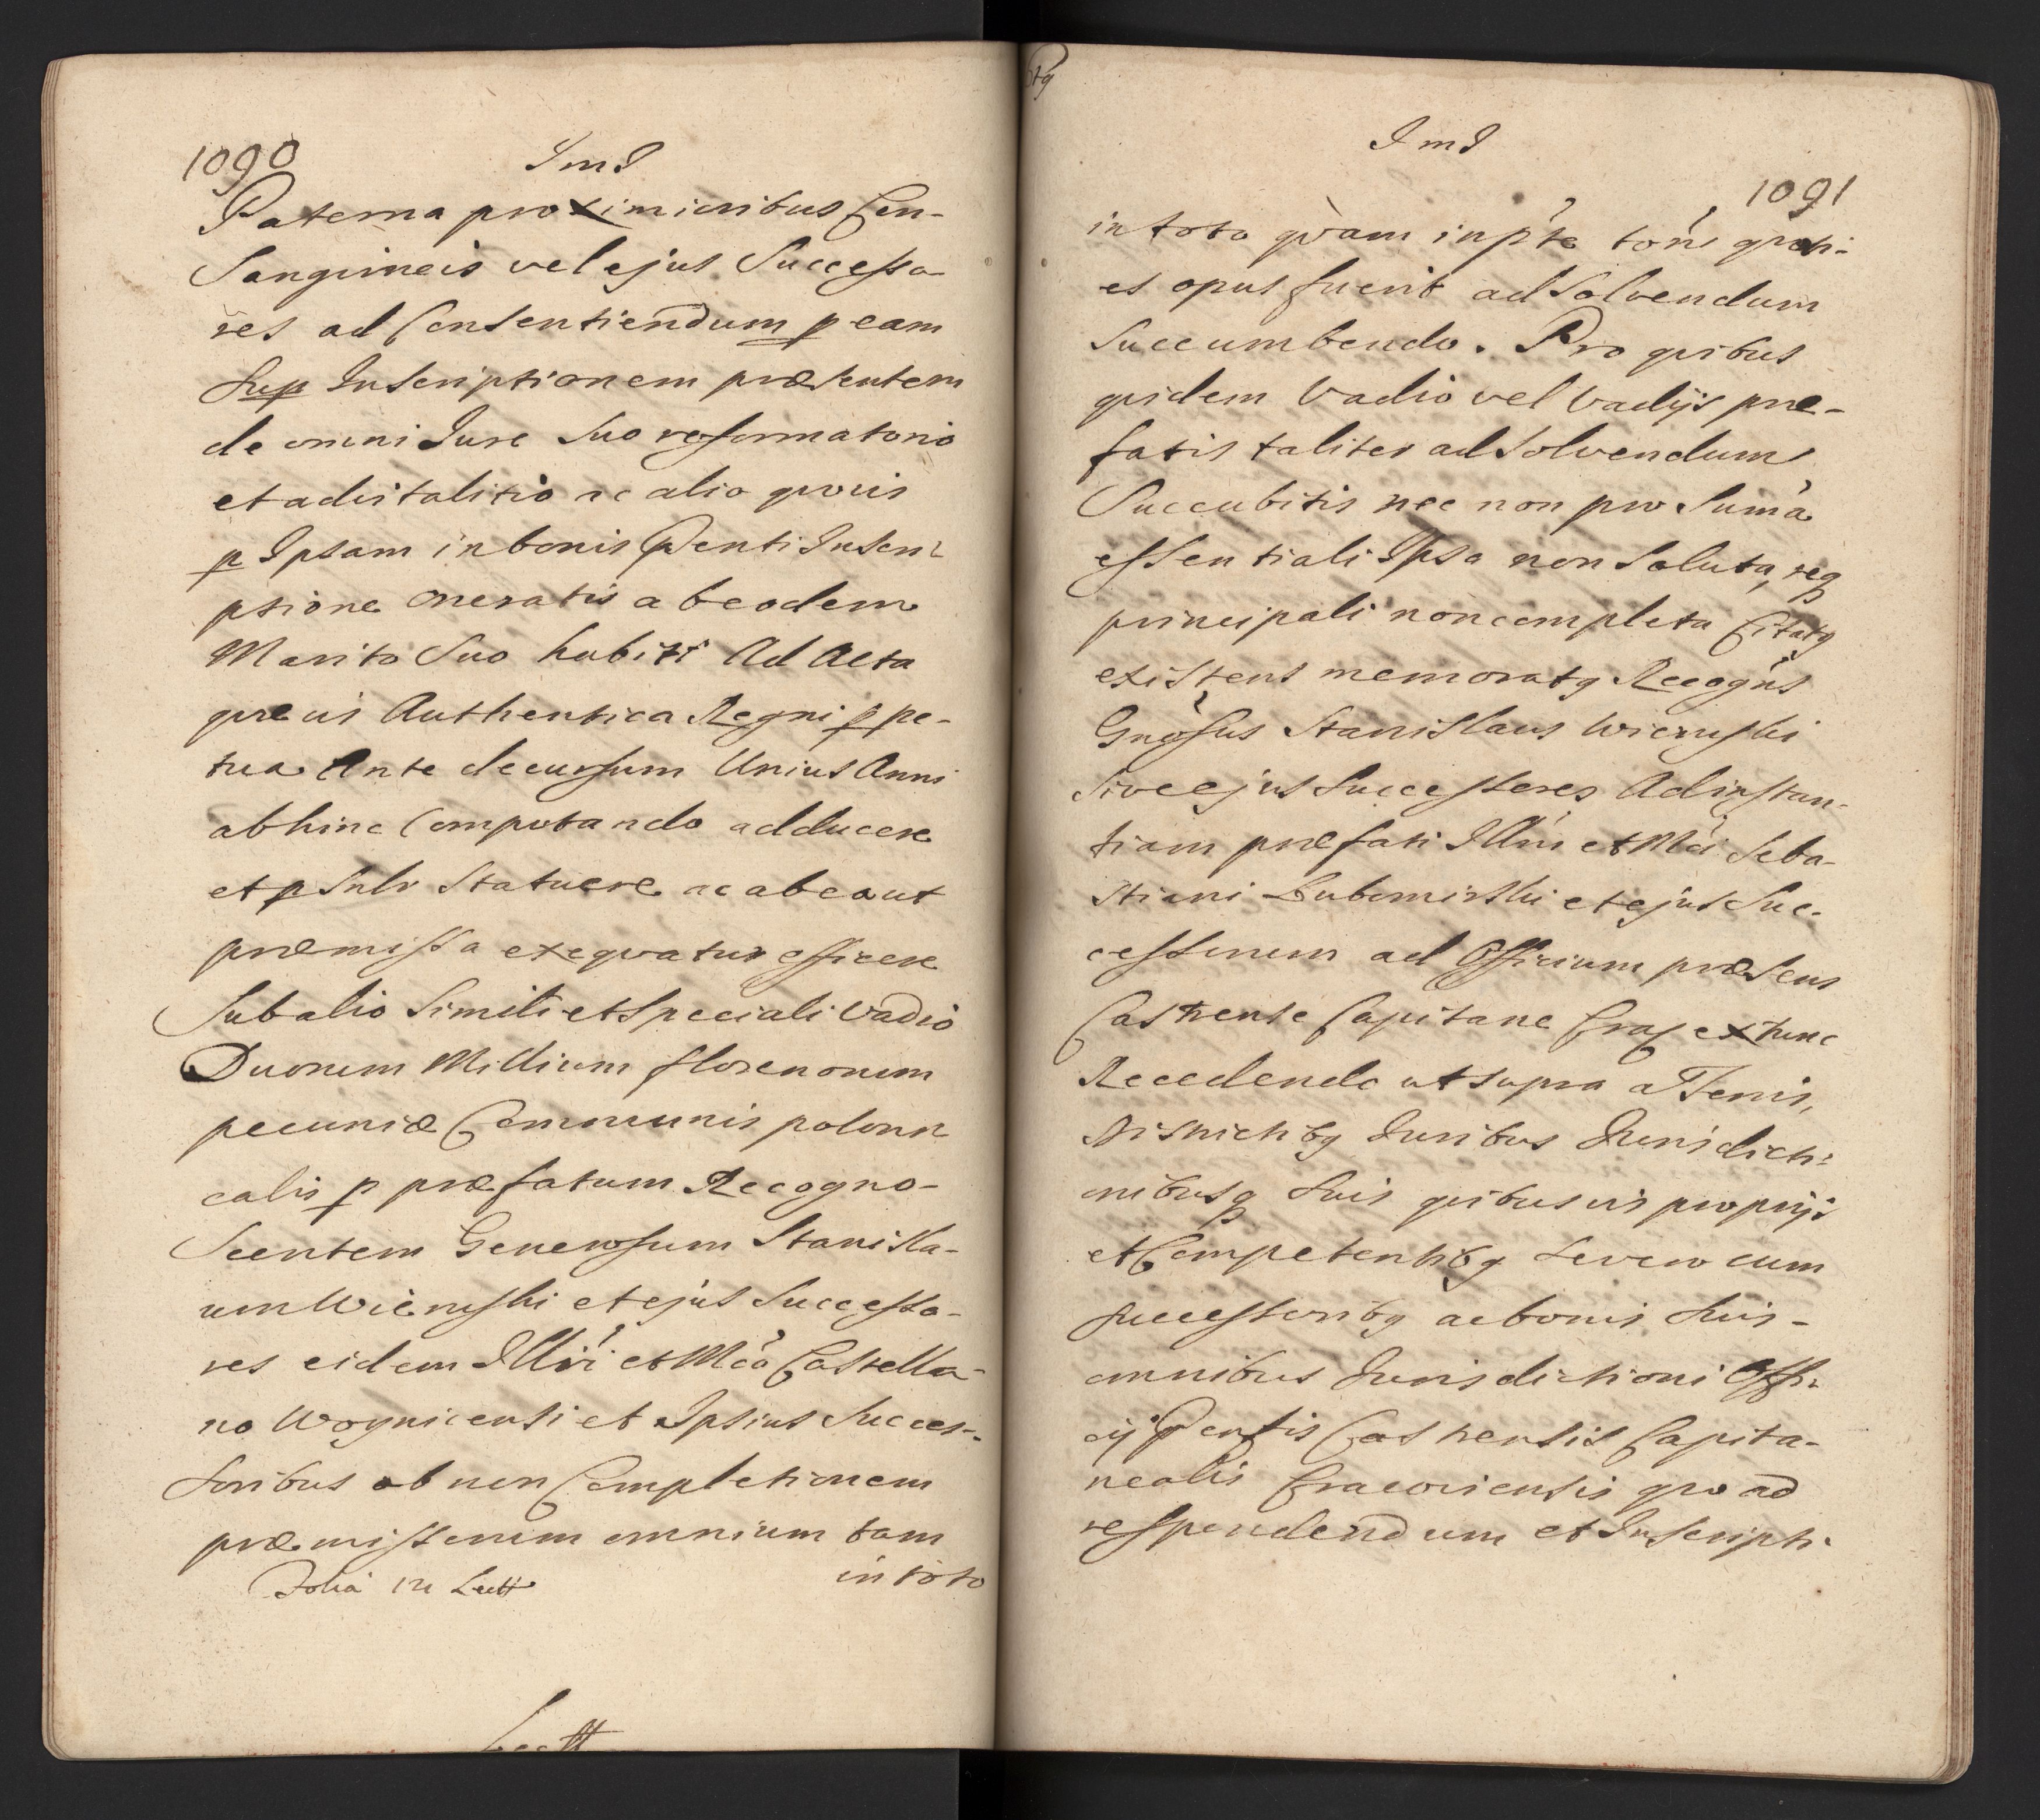 1090
ImJ
Paterna proximioribus Con-
Sangvineis vel ejus Successo-
res ad Consentiendum p eam
Sup Inscriptionem præsentem
de omni Jure Suo reformatorio
et advitalitio ac alio qvovis
p Ipsam in bonis Pnti Inscri-
ptione oneratis ab eodem
Marito Suo habiti Ad Acta
qvævis Authentica Regni ppe-
tua Ante decursum Unius Anni
abhinc Computando adducere
et psnlr Statuere ac ab ea ut
præmissa exeqvatur efficere
Sub alio Simili et Speciali Vadio
Duorum Millium florenorum
pecuniæ Communis poloni-
calis p præfatum Recogno-
Scentem Generosum Stanisla-
um Wierusski et ejus Successo-
res eidem Illri et Mco Castella-
no Woynicensi et Ipsius Succes-
soribus ob non Completionem
præmissorum omnium tam
in toto
ImJ
1091
in toto qvam in pte tots qvoti-
es opus fuerit ad Solvendum
Succumbendo. Pro qvibus
qvidem Vadio vel Vadijs præ-
fatis taliter ad Solvendum
Succubitis nec non pro Suma
essentiali Ipsa non Soluta, req
principali non completa Citatq
existens memoratq Recogns
Gnrosus Stanislaus Wierusski
Sive ejus Successores Ad instan-
tiam præfati Illris et Mci Seba-
stiani Lubomirski et ejus Suc-
cessorum ad Officium præsens
Castrense Capitane Crac ex tunc
Recedendo ut supra a Terris,
Districtibq Juribus Jurisdicti-
onibusq Suis qvibusvis proprijs
et Competentibq Se vero cum
Successoribq ac bonis Suis
omnibus Jurisdictioni Offi-
cij Pentis Castrensis Capita-
nealis Cracoviensis qvo ad
respondendum et Inscripti-